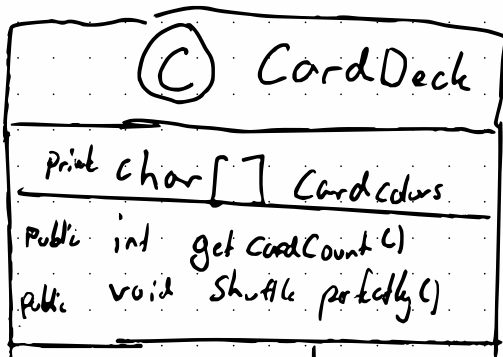 C CardDeck
private char[] Cardcolors
public int getCardCount()
public void Shuffle perfectly()